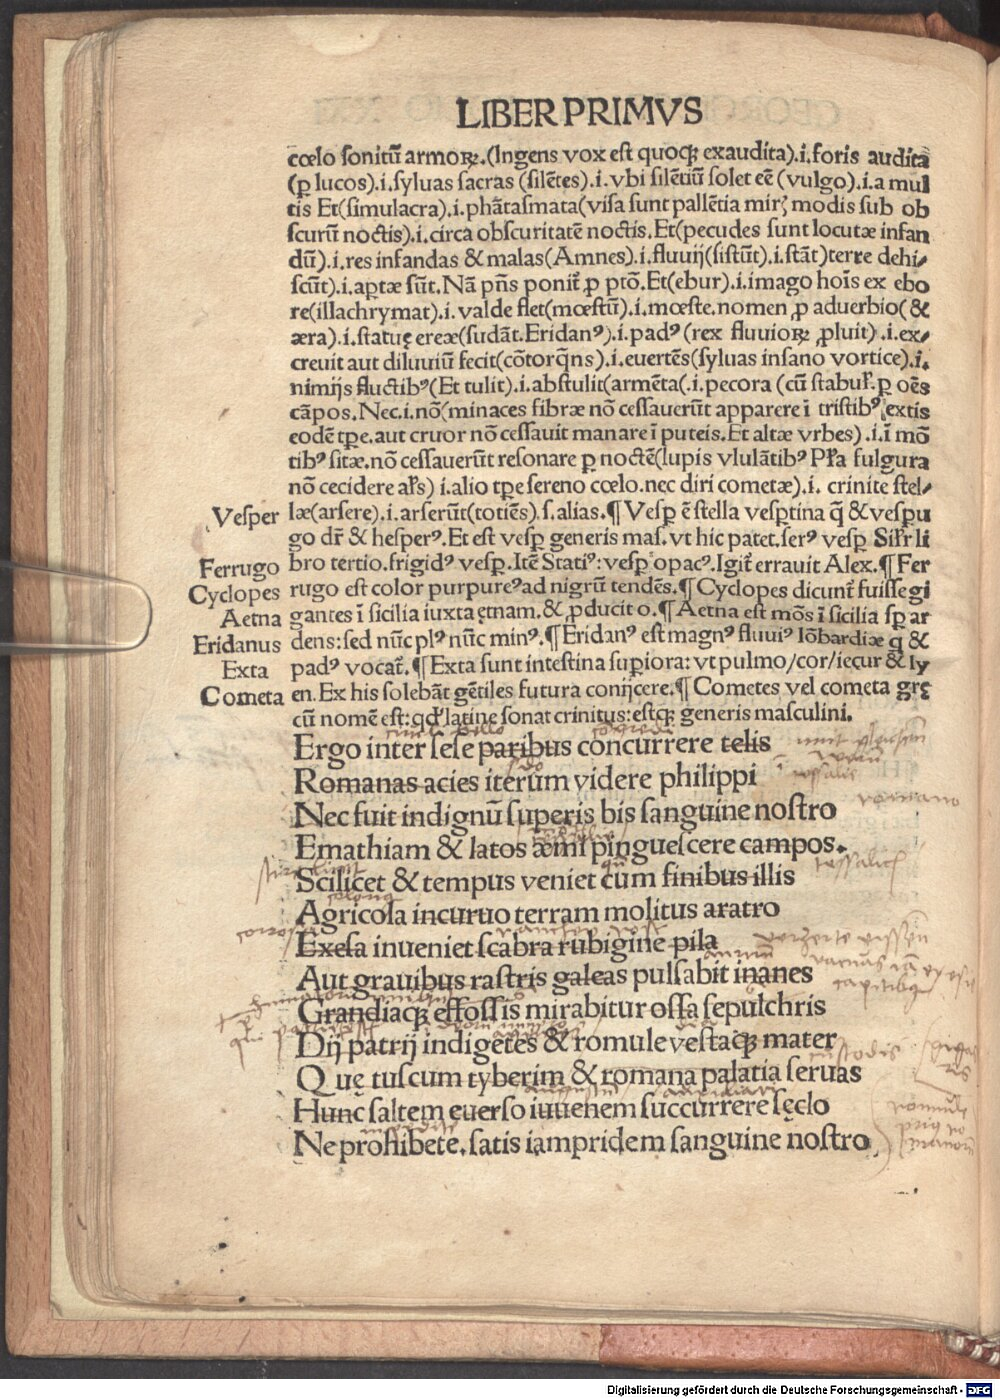 LIBER PRIMVS
cœlo sonitū armoꝝ.(Ingens vox est quoqꝫ exaudita).i.foris audita
(ꝑ lucos).i.syluas sacras (silētes).i.vbi silētiū solet eē (vulgo).i.a mul
tis Et(simulacra).i.phātasmata(visa sunt pallētia mirꝭ modis sub ob
scurū noctis).i.circa obscuritatē noctis.Et(pecudes sunt locutæ infan
dū).i.res infandas & malas(Amnes).i.fluuij(sistūt).i.stāt)terre dehi⸗
scūt).i.aꝑtæ sūt.Nā pn̄s ponit̄ ꝓ ptō.Et(ebur).i.imago hoīs ex ebo
re(illachrymat).i.valde flet(mœstū).i.mœste.nomen ꝓ aduerbio(&
æra).i.statuę ereæ(sudāt.Eridanꝰ).i.padꝰ (rex fluuioꝝ ꝓluit).i.ex⸗
creuit aut diluuiū fecit(cōtorq̄ns).i.euertēs(syluas insano vortice).i.
nimijs fluctibꝰ(Et tulit).i.abstulit(armēta(.i.pecora (cū stabuł.ꝑ oēs
cāpos.Nec.i.nō(minaces fibræ nō cessauerūt apparere ī tristibꝰ extis
eodē tꝑe.aut cruor nō cessauit manare ī puteis.Et altæ vrbes).i.ī mō
tibꝰ sitæ.nō cessauerūt resonare ꝑ noctē(lupis vlulātibꝰ Pł̄a fulgura
nō cecidere ał̄s) i.alio tꝑe sereno cœlo.nec diri cometæ).i. crinite stel⸗
Vesper læ(arsere).i.arserūt(totiēs).s.alias.¶ Vesꝑ ē stella vesꝑtina q̄ & vesꝑu
go dr̄ & hesperꝰ.Et est vesꝑ generis mas.vt hic patet.serꝰ vesꝑ Sił̄r li
Ferrugo bro tertio.frigidꝰ vesꝑ.Itē Statiꝰ:vesꝑ opacꝰ.Igit̄ errauit Alex.¶ Fer
Cyclopes rugo est color purpureꝰ ad nigrū tendēs.¶ Cyclopes dicunt̄ fuisse gi
Aetna gantes ī sicilia iuxta ętnam.& ꝓducit o.¶ Aetna est mōs ī sicilia sꝑ ar
Eridanus dens:sed nūc plꝰ nūc minꝰ.¶ Eridanꝰ est magnꝰ fluuiꝰ lōbardiæ q̄ &
Exta padꝰ vocat̄.¶ Exta sunt intestina suꝑiora: vt pulmo/cor/iecur & ly
Cometa en.Ex his solebāt gētiles futura conijcere.¶ Cometes vel cometa grę
cū nomē est:qd̄ latine sonat crinitus:estqꝫ generis masculini.
Ergo inter sese paribus concurrere telis
Romanas acies iterum videre philippi
Nec fuit indignū superis bis sanguine nostro
romano
Emathiam & latos æmi pinguescere campos.
Scilicet & tempus veniet cum finibus illis
Agricola incuruo terram molitus aratro
Exesa inueniet scabra rubigine pila
Aut grauibus rastris galeas pulsabit inanes
Grandiaqꝫ effossis mirabitur ossa sepulchris
Dij patrij indigetes & romule vestaqꝫ mater
custodis
Quę tuscum tyberim & romana palatia seruas
Hunc saltem euerso iuuenem succurrere sęclo
Ne prohibete.satis iampridem sanguine nostro
Digitalisierung gefördert durch die Deutsche Forschungsgemeinschaft - DFG